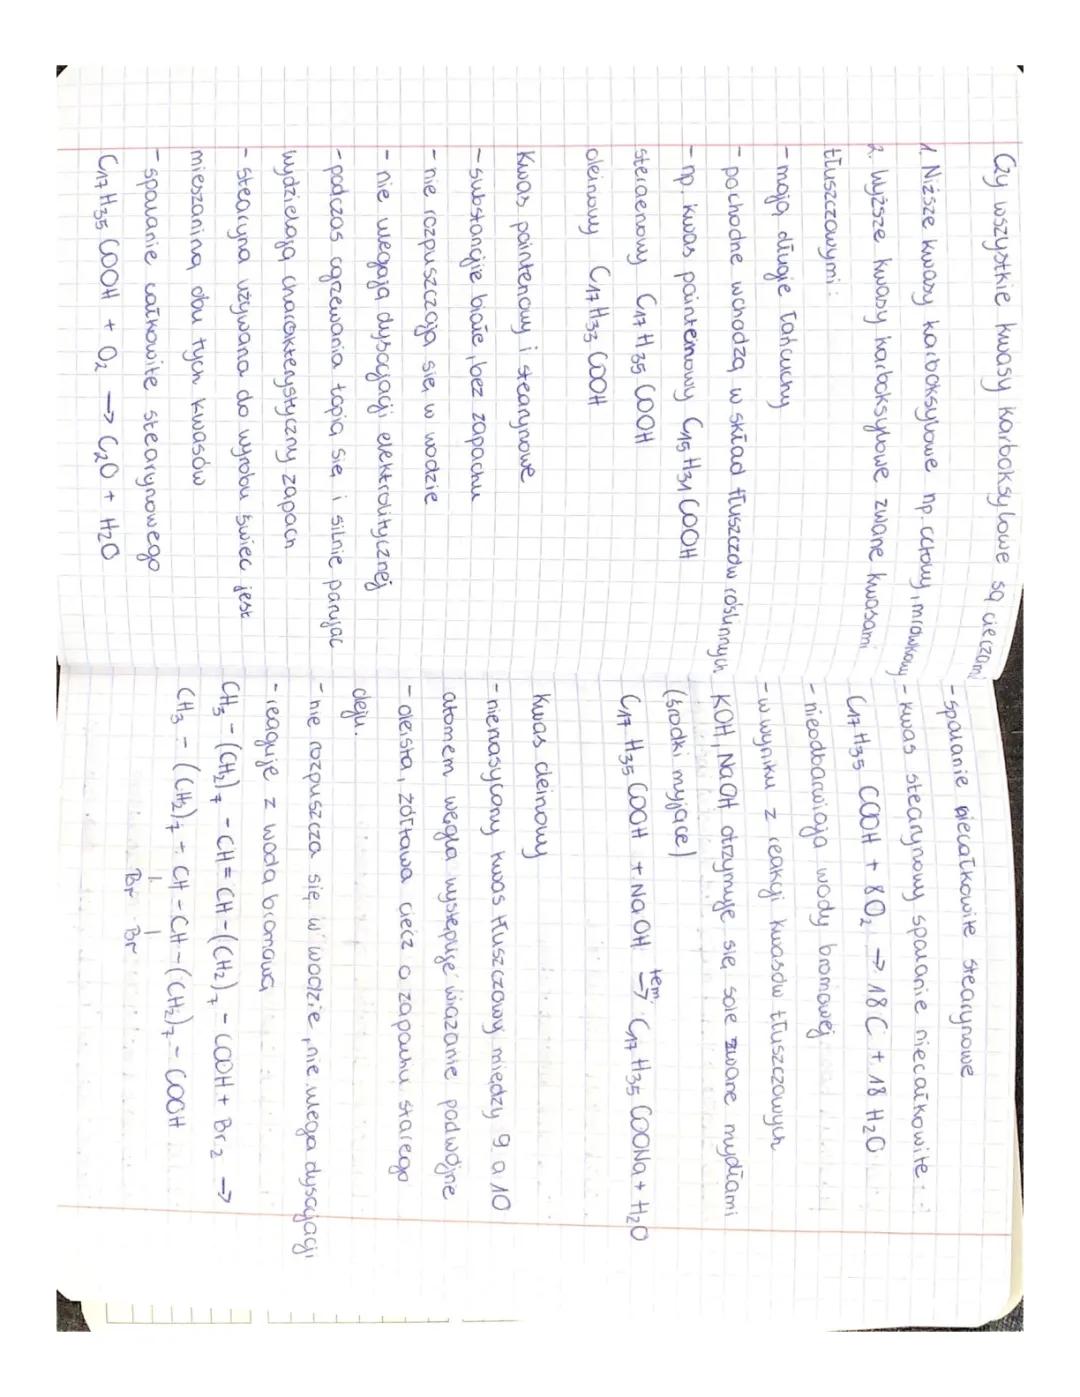 Czy wszystkie kwasy karboksylowe są cieczami
1. Niższe kwasy karboksylowe np. octowy, mrówkowy
2. Wyższe kwasy karboksylowe zwane kwasami
tłuszczowymi:
- mają długie łańcuchy
- pochodne wchodzą w skład tłuszczów roślinnych
- np. kwas palmitenowy C15 H31 COOH
steraenowy C17 H35 COOH
oleinowy C17 H33 COOH
Kwas palmitenowy i stearynowe
- substancje białe, bez zapachu
- nie rozpuszczają się w wodzie
- nie ulegają dysocjacji elektrolitycznej
- podczas ogrzewania topią się i silnie parując
wydzielają charakterystyczny zapach
- stearyna używana do wyrobu świec jest
mieszaniną obu tych kwasów
- spalanie całkowite stearynowego
C17 H35 COOH + O2 → C2O + H2O
- spalanie niecałkowite stearynowe
- kwas stearynowy spalanie niecałkowite:
C17 H35 COOH + 8O2 → 18C + 18 H2O
- nieodbarwiają wody bromowej
- w wyniku z reakcji kwasów tłuszczowych
KOH, NaOH otrzymuje się sole zwane mydłami
(środki myjące)
C17 H35 COOH + NaOH tem. → C17 H35 COONa + H2O
Kwas oleinowy
- nienasycony kwas tłuszczowy między 9 a 10
atomem węgla występuje wiązanie podwójne
- oleista, żółtawa ciecz o zapachu starego
oleju.
- nie rozpuszcza się w wodzie, nie ulega dysocjacji
- reaguje z wodą bromową
CH3 - (CH2)7 - CH = CH - (CH2)7 - COOH + Br2 →
CH3 - (CH2)7 - CH - CH - (CH2)7 - COOH
Br Br